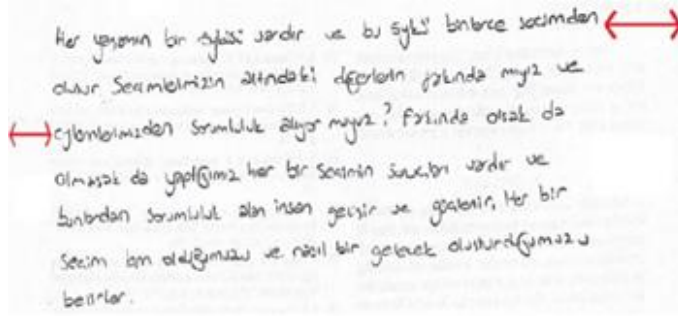 Her yaşamın bir öyküsü vardır ve bu öykü binlerce seçimden
oluşur. Seçimlerimizin altındaki değerlerin farkında mıyız ve
eylemlerimizden sorumluluk alıyor muyuz? Farkında olsak da
olmasak da yaptığımız her bir seçimin sonuçları vardır ve
bunlardan sorumluluk alan insan gelişir ve güçlenir. Her bir
seçim kim olduğumuzu ve nasıl bir gelecek oluşturduğumuzu
belirler.